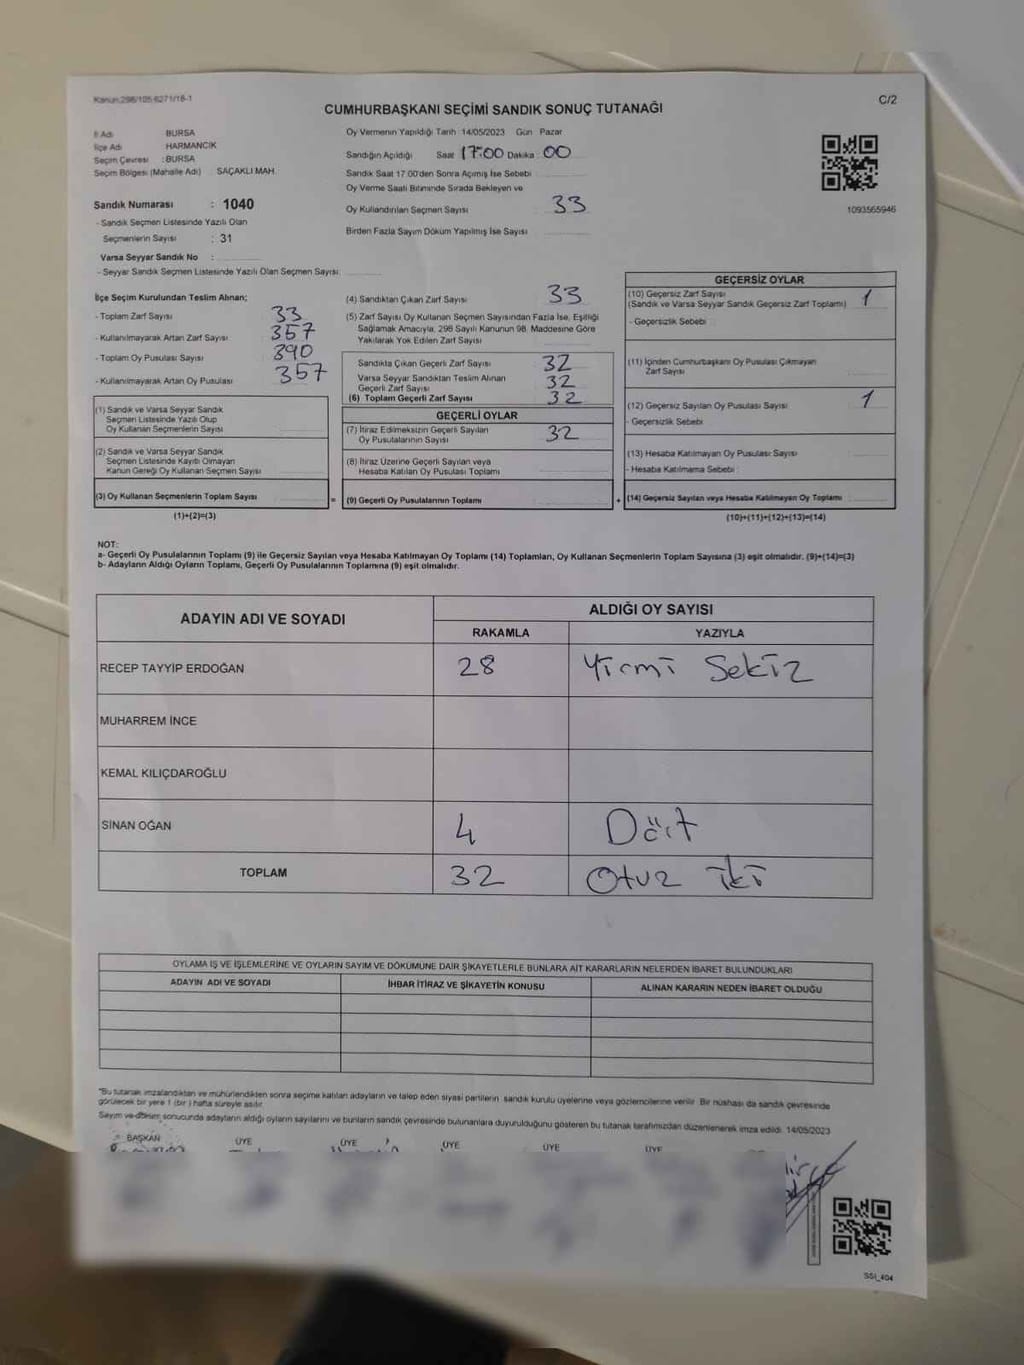 Kanun:298/105-6271/18-1
C/2
CUMHURBAŞKANI SEÇİMİ SANDIK SONUÇ TUTANAĞI
İl Adı BURSA
İlçe Adı HARMANCIK
Seçim Çevresi : BURSA
Seçim Bölgesi (Mahalle Adı) SAÇAKLI MAH.
Sandık Numarası : 1040
- Sandık Seçmen Listesinde Yazılı Olan
Seçmenlerin Sayısı : 31
Varsa Seyyar Sandık No :
- Seyyar Sandık Seçmen Listesinde Yazılı Olan Seçmen Sayısı:
Oy Vermenin Yapıldığı Tarih 14/05/2023 Gün Pazar
Sandığın Açıldığı Saat 17:00 Dakika : 00
Sandık Saat 17.00'den Sonra Açımış İse Sebebi
Oy Verme Saati Bitiminde Sırada Bekleyen ve
Oy Kullandırılan Seçmen Sayısı 33
Birden Fazla Sayım Döküm Yapılmış İse Sayısı
1093565946
İlçe Seçim Kurulundan Teslim Alınan;
- Toplam Zarf Sayısı 33
- Kullanılmayarak Artan Zarf Sayısı 357
- Toplam Oy Pusulası Sayısı 390
- Kullanılmayarak Artan Oy Pusulası 357
(1) Sandık ve Varsa Seyyar Sandık
Seçmen Listesinde Yazılı Olup
Oy Kullanan Seçmenlerin Sayısı
(2) Sandık ve Varsa Seyyar Sandık
Seçmen Listesinde Kayıtlı Olmayan
Kanun Gereği Oy Kullanan Seçmen Sayısı
(3) Oy Kullanan Seçmenlerin Toplam Sayısı
(1)+(2)=(3)
(4) Sandıktan Çıkan Zarf Sayısı 33
(5) Zarf Sayısı Oy Kullanan Seçmen Sayısından Fazla İse, Eşitliği
Sağlamak Amacıyla, 298 Sayılı Kanunun 98. Maddesine Göre
Yakılarak Yok Edilen Zarf Sayısı
Sandıkta Çıkan Geçerli Zarf Sayısı 32
Varsa Seyyar Sandıktan Teslim Alınan
Geçerli Zarf Sayısı 32
(6) Toplam Geçerli Zarf Sayısı 32
GEÇERLİ OYLAR
(7) İtiraz Edilmeksizin Geçerli Sayılan
Oy Pusulalarının Sayısı 32
(8) İtiraz Üzerine Geçerli Sayılan veya
Hesaba Katılan Oy Pusulası Toplamı
= (9) Geçerli Oy Pusulalarının Toplamı
GEÇERSİZ OYLAR
(10) Geçersiz Zarf Sayısı
(Sandık ve Varsa Seyyar Sandık Geçersiz Zarf Toplamı) 1
- Geçersizlik Sebebi
(11) İçinden Cumhurbaşkanı Oy Pusulası Çıkmayan
Zarf Sayısı
(12) Geçersiz Sayılan Oy Pusulası Sayısı 1
- Geçersizlik Sebebi
(13) Hesaba Katılmayan Oy Pusulası Sayısı
- Hesaba Katılmama Sebebi
+ (14) Geçersiz Sayılan veya Hesaba Katılmayan Oy Toplamı
(10)+(11)+(12)+(13)=(14)
NOT:
a- Geçerli Oy Pusulalarının Toplamı (9) ile Geçersiz Sayılan veya Hesaba Katılmayan Oy Toplamı (14) Toplamları, Oy Kullanan Seçmenlerin Toplam Sayısına (3) eşit olmalıdır. (9)+(14)=(3)
b- Adayların Aldığı Oyların Toplamı, Geçerli Oy Pusulalarının Toplamına (9) eşit olmalıdır.
ADAYIN ADI VE SOYADI
ALDIĞI OY SAYISI
RAKAMLA YAZIYLA
RECEP TAYYİP ERDOĞAN 28 Yirmi Sekiz
MUHARREM İNCE
KEMAL KILIÇDAROĞLU
SİNAN OĞAN 4 Dört
TOPLAM 32 Otuz iki
OYLAMA İŞ VE İŞLEMLERİNE VE OYLARIN SAYIM VE DÖKÜMÜNE DAİR ŞİKAYETLERLE BUNLARA AİT KARARLARIN NELERDEN İBARET BULUNDUKLARI
ADAYIN ADI VE SOYADI İHBAR İTİRAZ VE ŞİKAYETİN KONUSU ALINAN KARARIN NEDEN İBARET OLDUĞU
*Bu tutanak imzalandıktan ve mühürlendikten sonra seçime katılan adayların ve talep eden siyasi partilerin sandık kurulu üyelerine veya gözlemcilerine verilir. Bir nüshası da sandık çevresinde
görülecek bir yere 1 (bir) hafta süreyle asılır.
Sayım ve döküm sonucunda adayların aldığı oyların sayılarını ve bunların sandık çevresinde bulunanlara duyurulduğunu gösteren bu tutanak tarafımızdan düzenlenerek imza edildi. 14/05/2023
BAŞKAN ÜYE ÜYE ÜYE ÜYE ÜYE
SSI_404